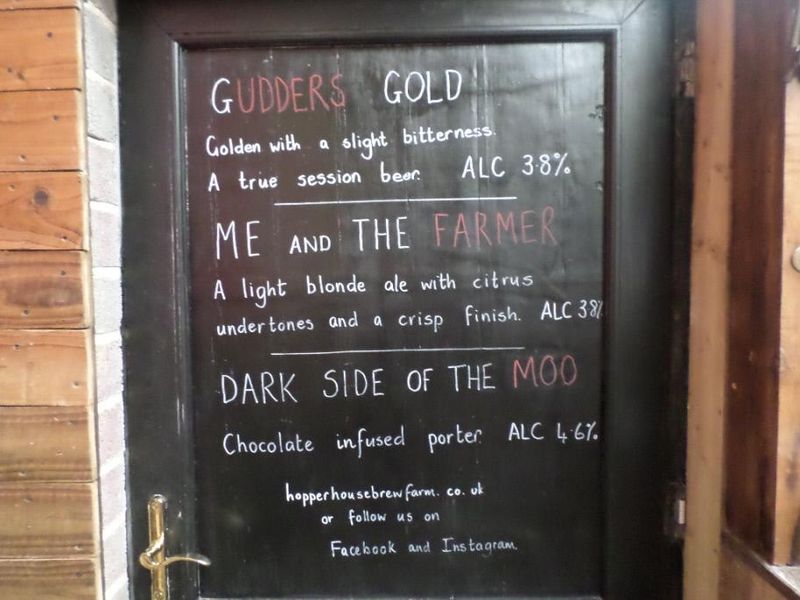 GUDDERS GOLD
Golden with a slight bitterness.
A true session beer. ALC 3.8%
ME AND THE FARMER
A light blonde ale with citrus
undertones and a crisp finish. ALC 3.8%
DARK SIDE OF THE MOO
Chocolate infused porter. ALC 4.6%
hopperhousebrewfarm.co.uk
or follow us on
Facebook and Instagram.